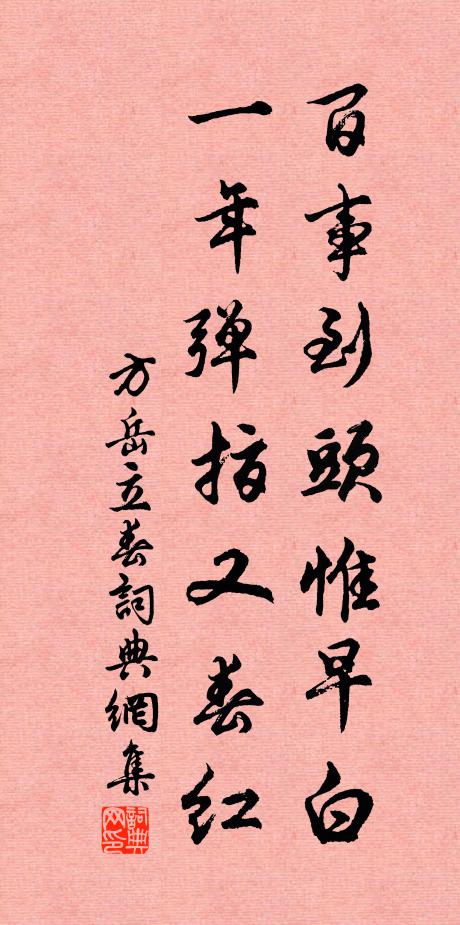 百事到頭惟早白
一年弹指又春红
方岳立春詞典網集
詞典网印